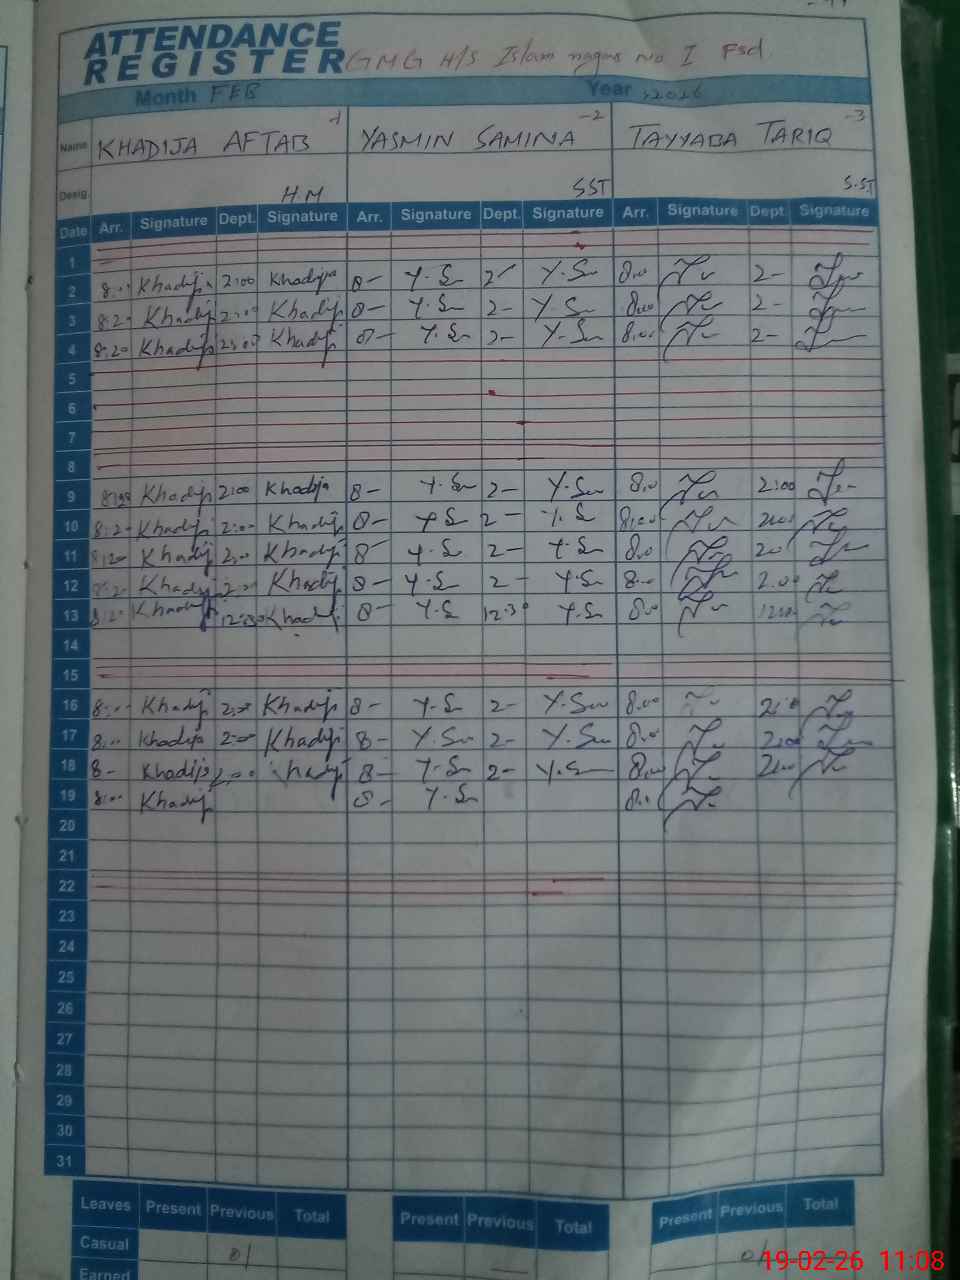 ATTENDANCE
REGISTER GMG H/S Islam nagar No I Fsd.
Month FEB Year 2026
Name KHADIJA AFTAB -1 YASMIN SAMINA -2 TAYYABA TARIQ -3
Desig. H.M SST S.ST
Date Arr. Signature Dept. Signature Arr. Signature Dept. Signature Arr. Signature Dept. Signature
1
2 Khadija 2:00 Khadija 8- Y.S 2- Y.S 8.00 2-
3 8:20 Khadija Khadija 8- Y.S 2- Y.S 8.00 2-
4 8:20 Khadija Khadija 8- Y.S 2- Y.S 8.00 2-
5
6
7
8
9 Khadija 2:00 Khadija 8- Y.S 2- Y.S 8.00 2:00
10 8:20 Khadija 2:00 Khadija 8- Y.S 2- Y.S 8.00 2:00
11 8:20 Khadija 2:00 Khadija 8- Y.S 2- Y.S 8.00
12 8:20 Khadija Khadija 8- Y.S 2- Y.S 8.00 2:00
13 8:20 Khadija 12:30 Khadija 8- Y.S 12:30 Y.S 8.00
14
15
16 8:00 Khadija 2:00 Khadija 8- Y.S 2- Y.S 8.00
17 8:00 Khadija 2:00 Khadija 8- Y.S 2- Y.S 8.00 2:00
18 8- Khadija 2:00 Khadija 8- Y.S 2- Y.S 8.00 2:00
19 8:00 Khadija 8- Y.S 8.00
20
21
22
23
24
25
26
27
28
29
30
31
Leaves Present Previous Total Present Previous Total Present Previous Total
Casual 01
Earned
19-02-26 11:08